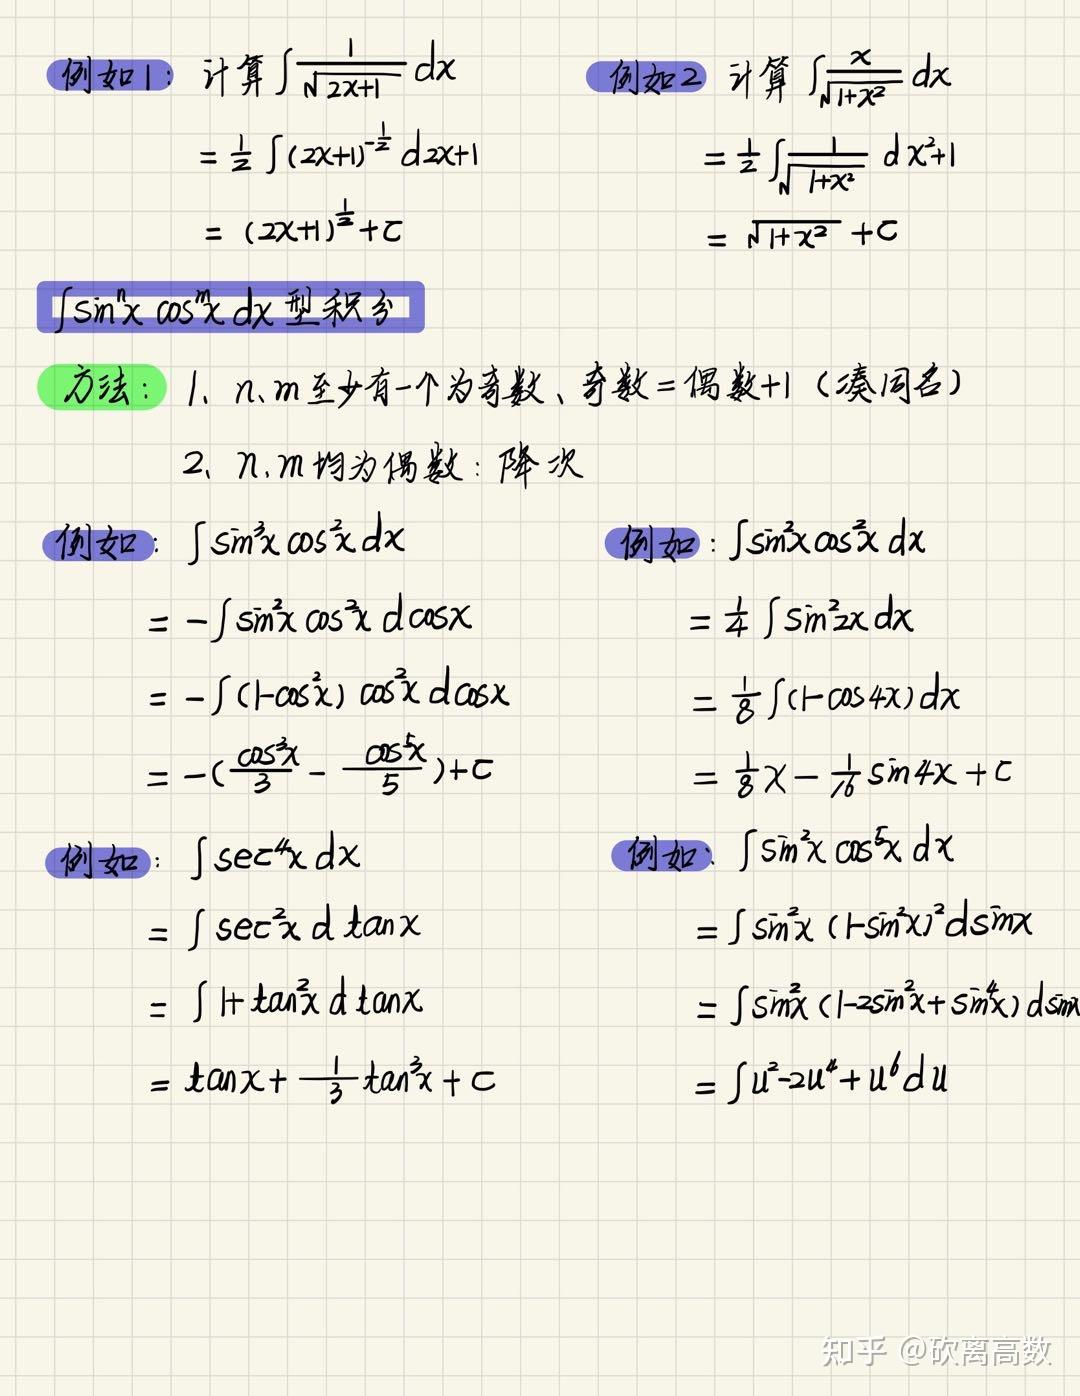 例如1: 计算 ∫ 1/√(2x+1) dx
= 1/2 ∫ (2x+1)^(-1/2) d2x+1
= (2x+1)^(1/2) + C
例如2 计算 ∫ x/√(1+x²) dx
= 1/2 ∫ 1/√(1+x²) d x²+1
= √(1+x²) + C
∫ sinⁿx cosᵐx dx 型积分
方法: 1、n、m至少有一个为奇数、奇数=偶数+1 (凑同名)
2、n、m均为偶数: 降次
例如: ∫ sin³x cos²x dx
= -∫ sin²x cos²x d cosx
= -∫ (1-cos²x) cos²x d cosx
= -(cos³x/3 - cos⁵x/5) + C
例如: ∫ sin²x cos²x dx
= 1/4 ∫ sin²2x dx
= 1/8 ∫ (1-cos4x) dx
= 1/8 x - 1/16 sin4x + C
例如: ∫ sec⁴x dx
= ∫ sec²x d tanx
= ∫ 1+tan²x d tanx
= tanx + 1/3 tan³x + C
例如: ∫ sin²x cos⁵x dx
= ∫ sin²x (1-sin²x)² d sinx
= ∫ sin²x (1-2sin²x+sin⁴x) d sinx
= ∫ u²-2u⁴+u⁶ du
知乎 @砍离高数